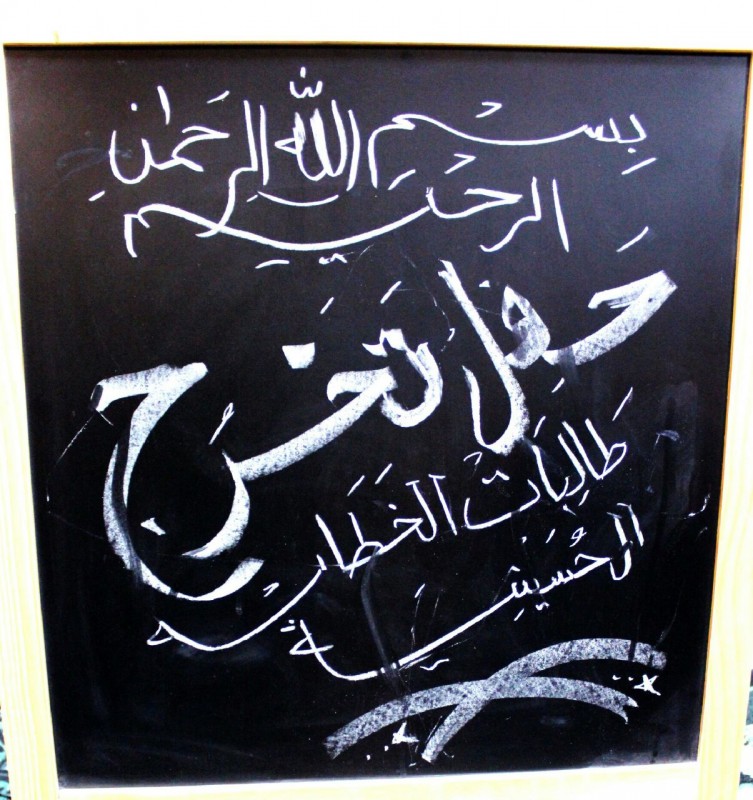 بِسْمِ اللّٰهِ الرَّحْمٰنِ
الرَّحِيم
حَفل تَخَرُّج
طَالِبَات الخَطَابه
الحُسَينِيَّة